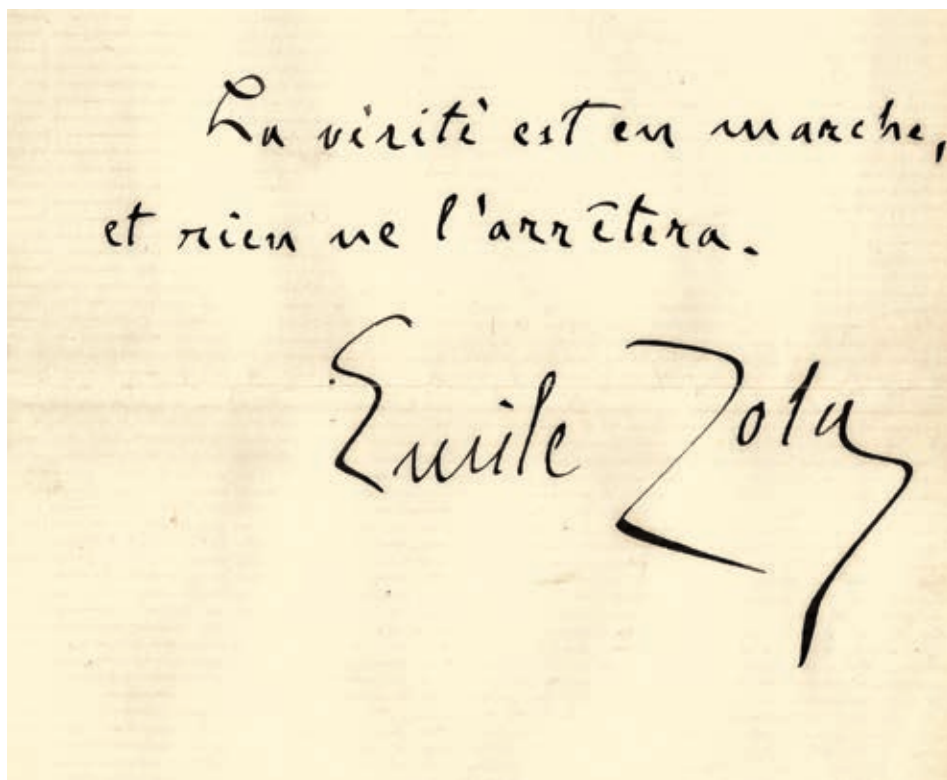 La vérité est en marche,
et rien ne l'arrêtera.
Emile Zola